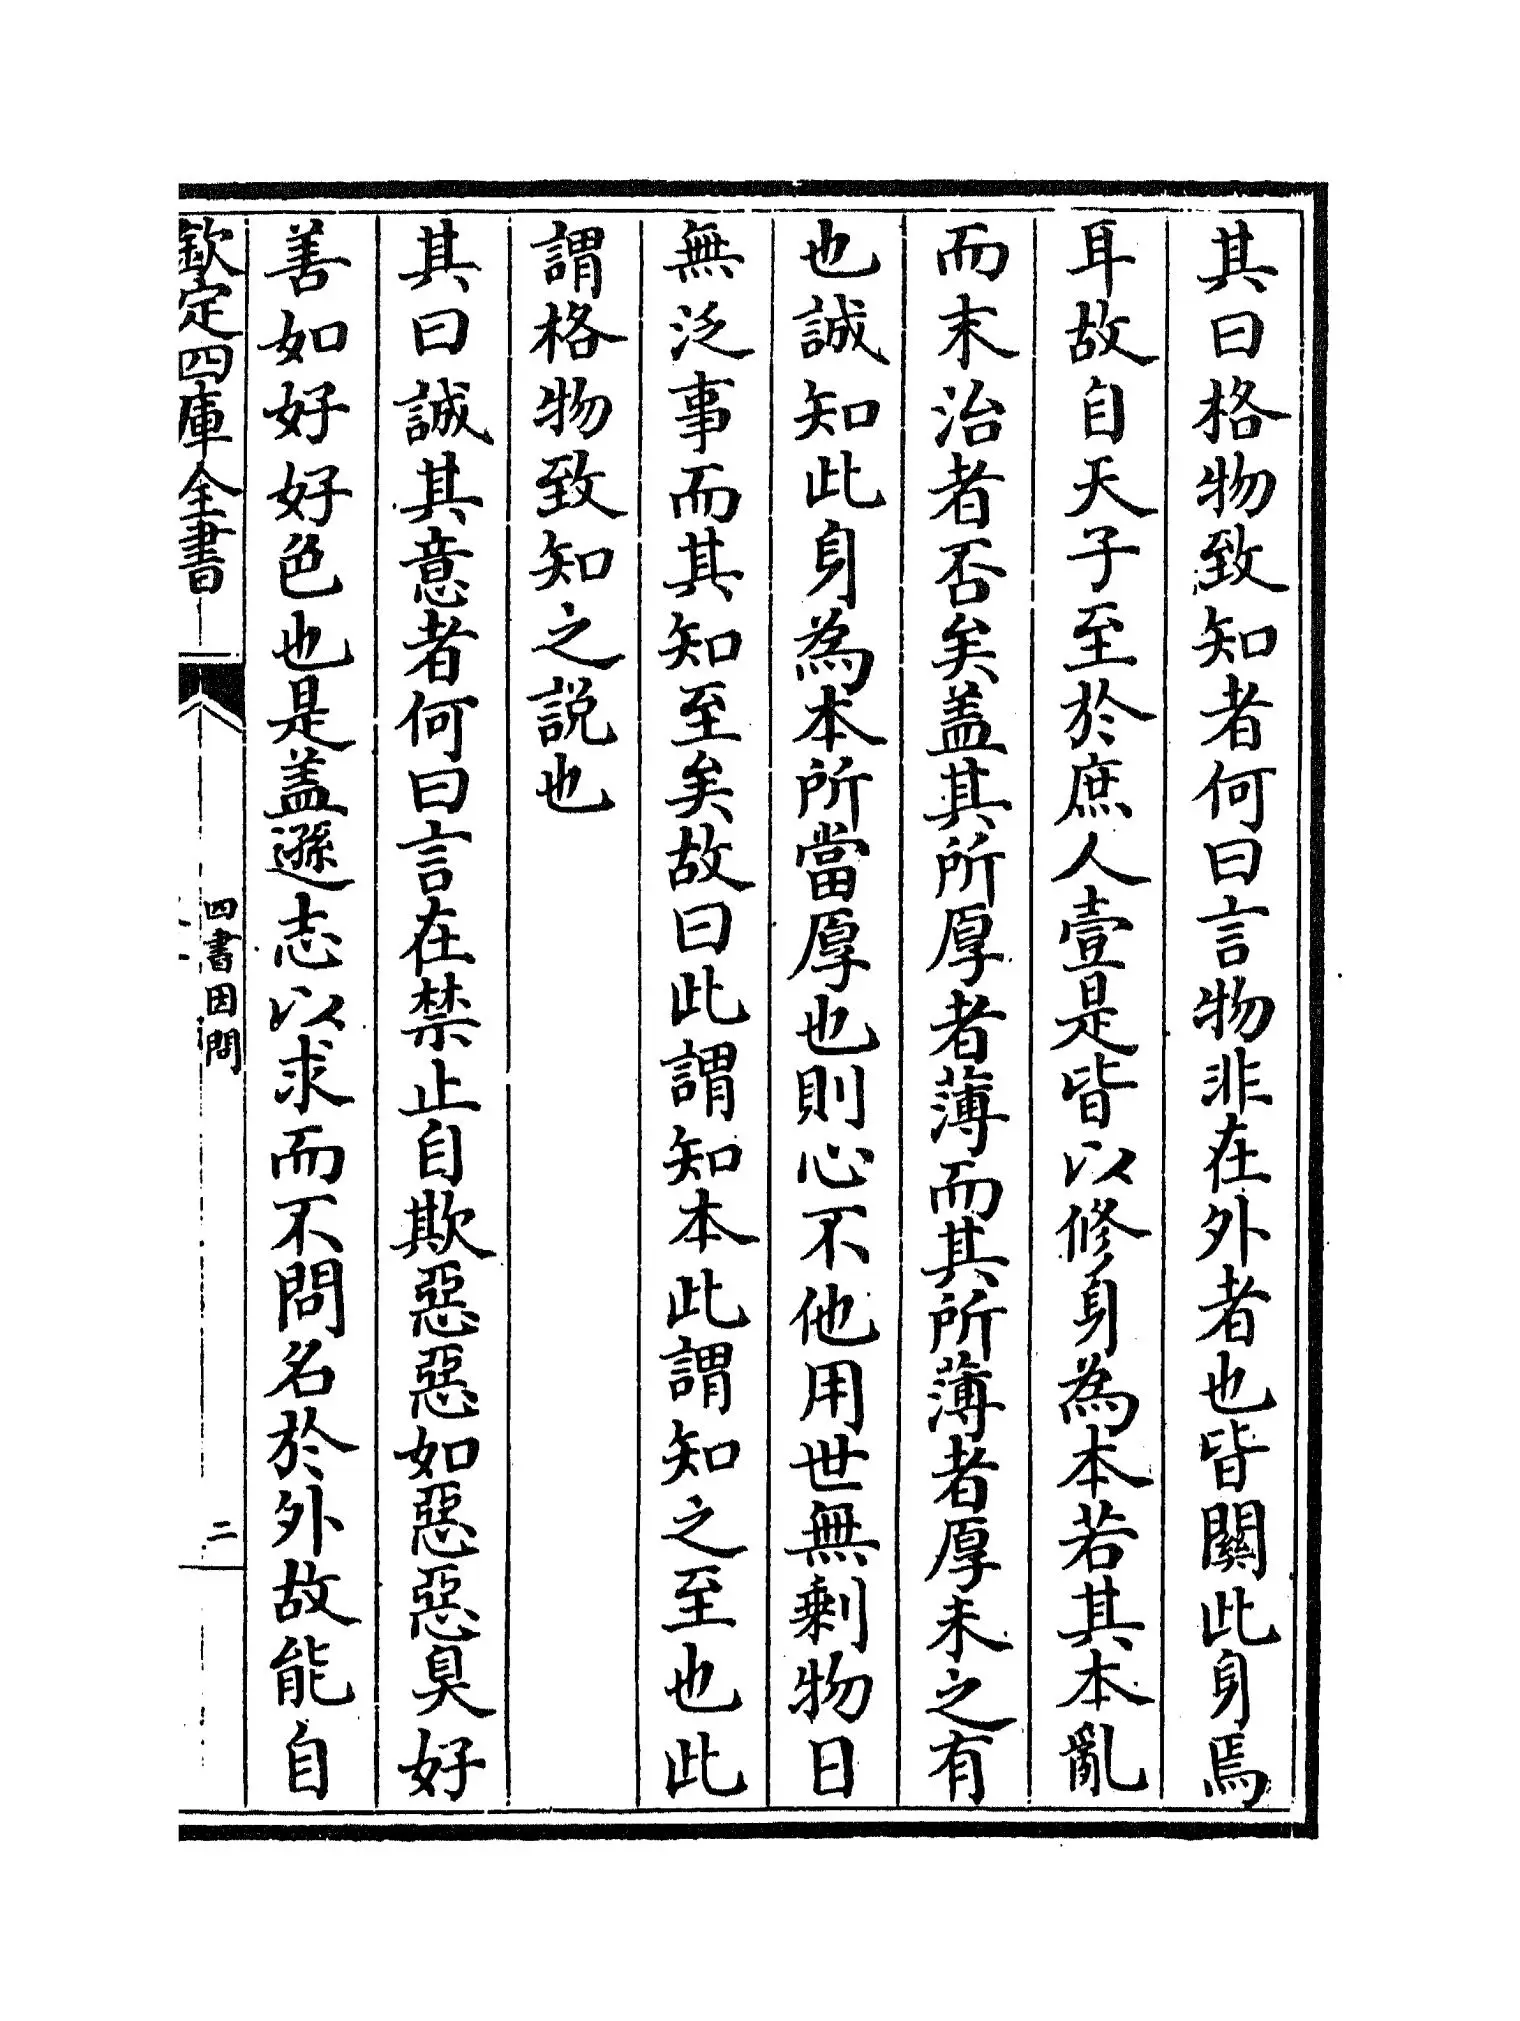 其曰格物致知者何曰言物非在外者也皆關此身焉
耳故自天子至於庶人壹是皆以修身為本若其本亂
而末治者否矣盖其所厚者薄而其所薄者厚未之有
也誠知此身為本所當厚也則心不他用世無剩物日
無泛事而其知至矣故曰此謂知本此謂知之至也此
謂格物致知之說也
其曰誠其意者何曰言在禁止自欺惡惡如惡惡臭好
善如好好色也是盖遜志以求而不問名於外故能自
欽定四庫全書
四書因問
二